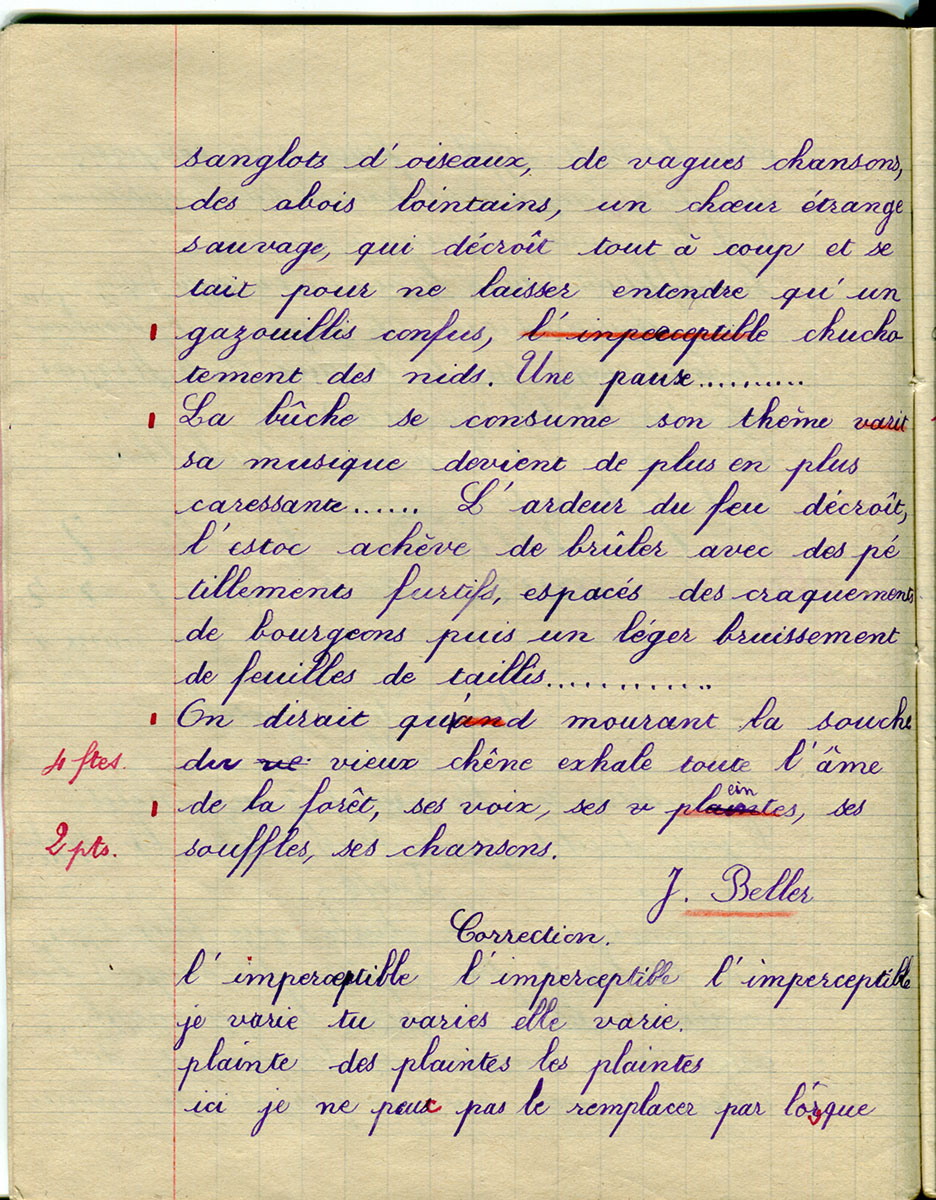 sanglots d'oiseaux, de vagues chansons,
des abois lointains, un chœur étrange
sauvage, qui décroît tout à coup et se
tait pour ne laisser entendre qu'un
gazouillis confus, l'inperceptible chucho
tement des nids. Une pause..........
La bûche se consume son thème varit
sa musique devient de plus en plus
caressante...... L'ardeur du feu décroît,
l'estoc achève de brûler avec des pé
tillements furtifs, espacés des craquements
de bourgeons puis un léger bruissement
de feuilles de taillis.............
On dirait qu'and mourant la souche
4 ftes. du ve vieux chêne exhale toute l'âme
de la forêt, ses voix, ses v plaintes, ses
2 pts. souffles, ses chansons.
J. Beller
Correction.
l'imperceptible l'imperceptible l'imperceptible
je varie tu varies elle varie.
plainte des plaintes les plaintes
ici je ne peux pas le remplacer par lorsque